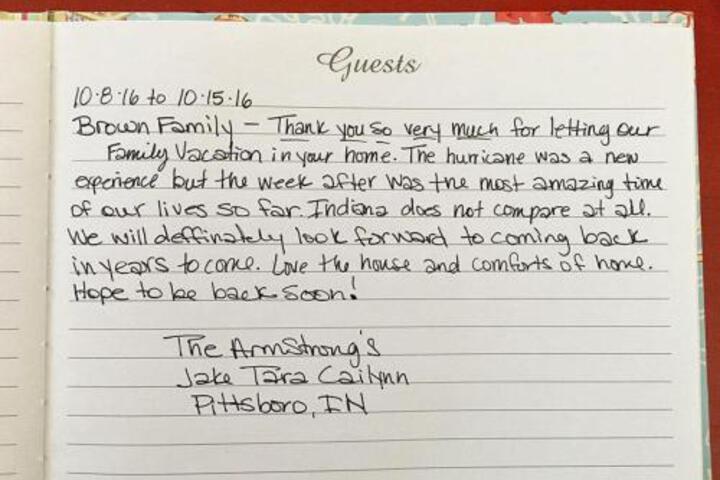 Guests
10·8·16 to 10·15·16
Brown Family - Thank you so very much for letting our
Family Vacation in your home. The hurricane was a new
experience but the week after was the most amazing time
of our lives so far. Indiana does not compare at all.
We will deffinately look forward to coming back
in years to come. Love the house and comforts of home.
Hope to be back soon!
The Armstrong's
Jake Tara Cailynn
Pittsboro, IN